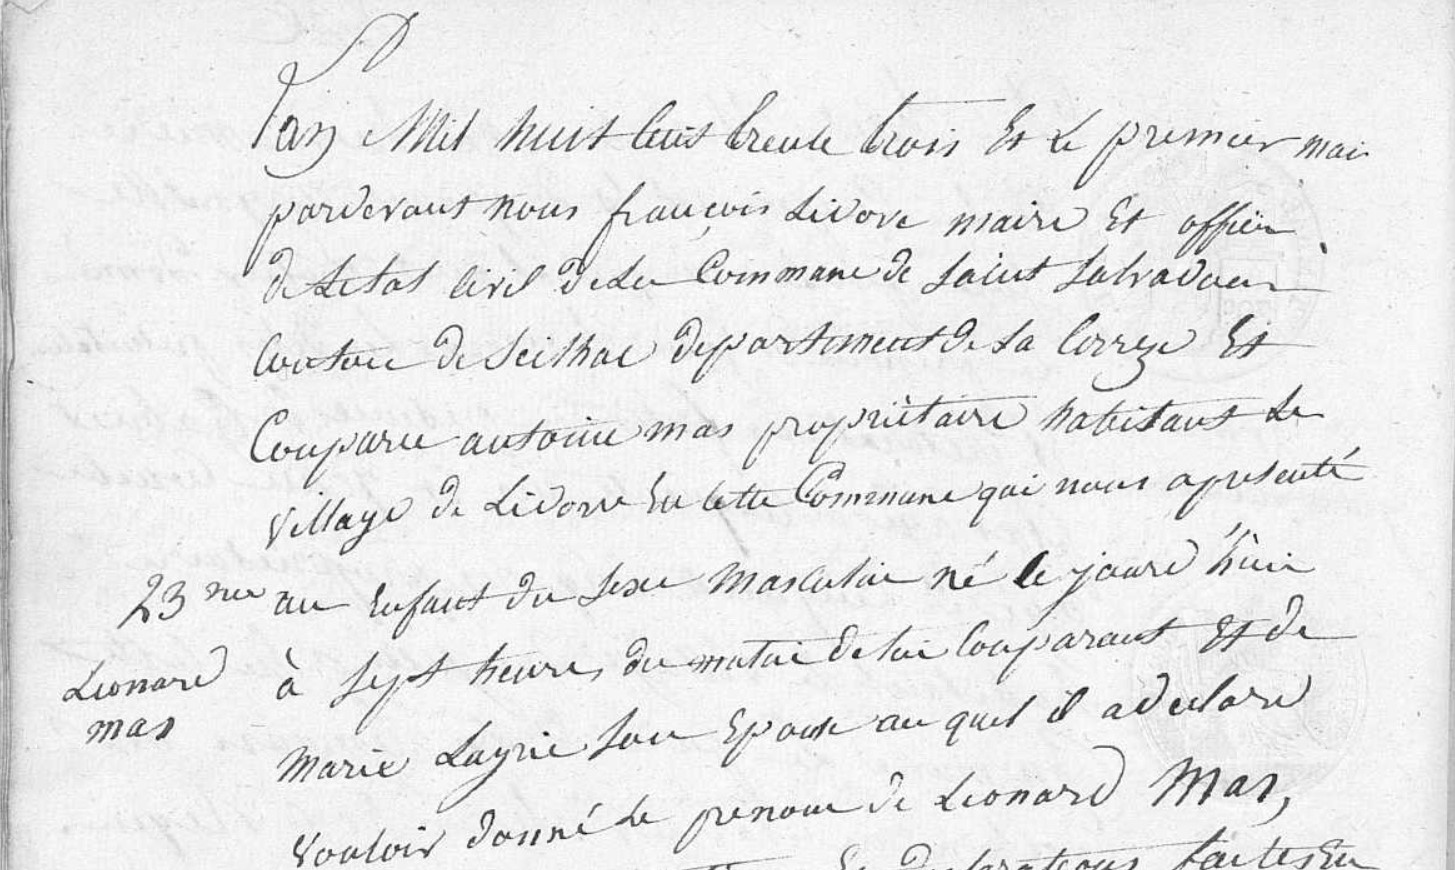 Lan Mil huit cent trente trois Et Le premier mai
pardevant nous françois Lidove maire Et officier
de Letat Civil de La Commune de Saint Salvadour
Canton de Seilhac departement de La Correze Et
Comparu antoine mas propriétaire habitant Le
village de Lidove En Cette Commune qui nous a presenté
23 me
un Enfant du sexe Masculin né le jourd'hui
Leonard
à Sept heures du matin de lui Comparant Et de
mas
Marie Layrie Son Epouse au quel il a declaré
Vouloir donné Le prenom de Leonard Mas,
declarations faites En